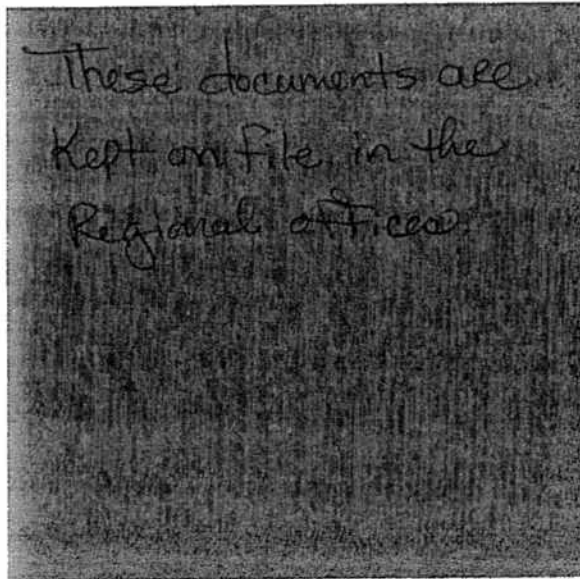 These documents are
Kept on file in the
Regional offices.